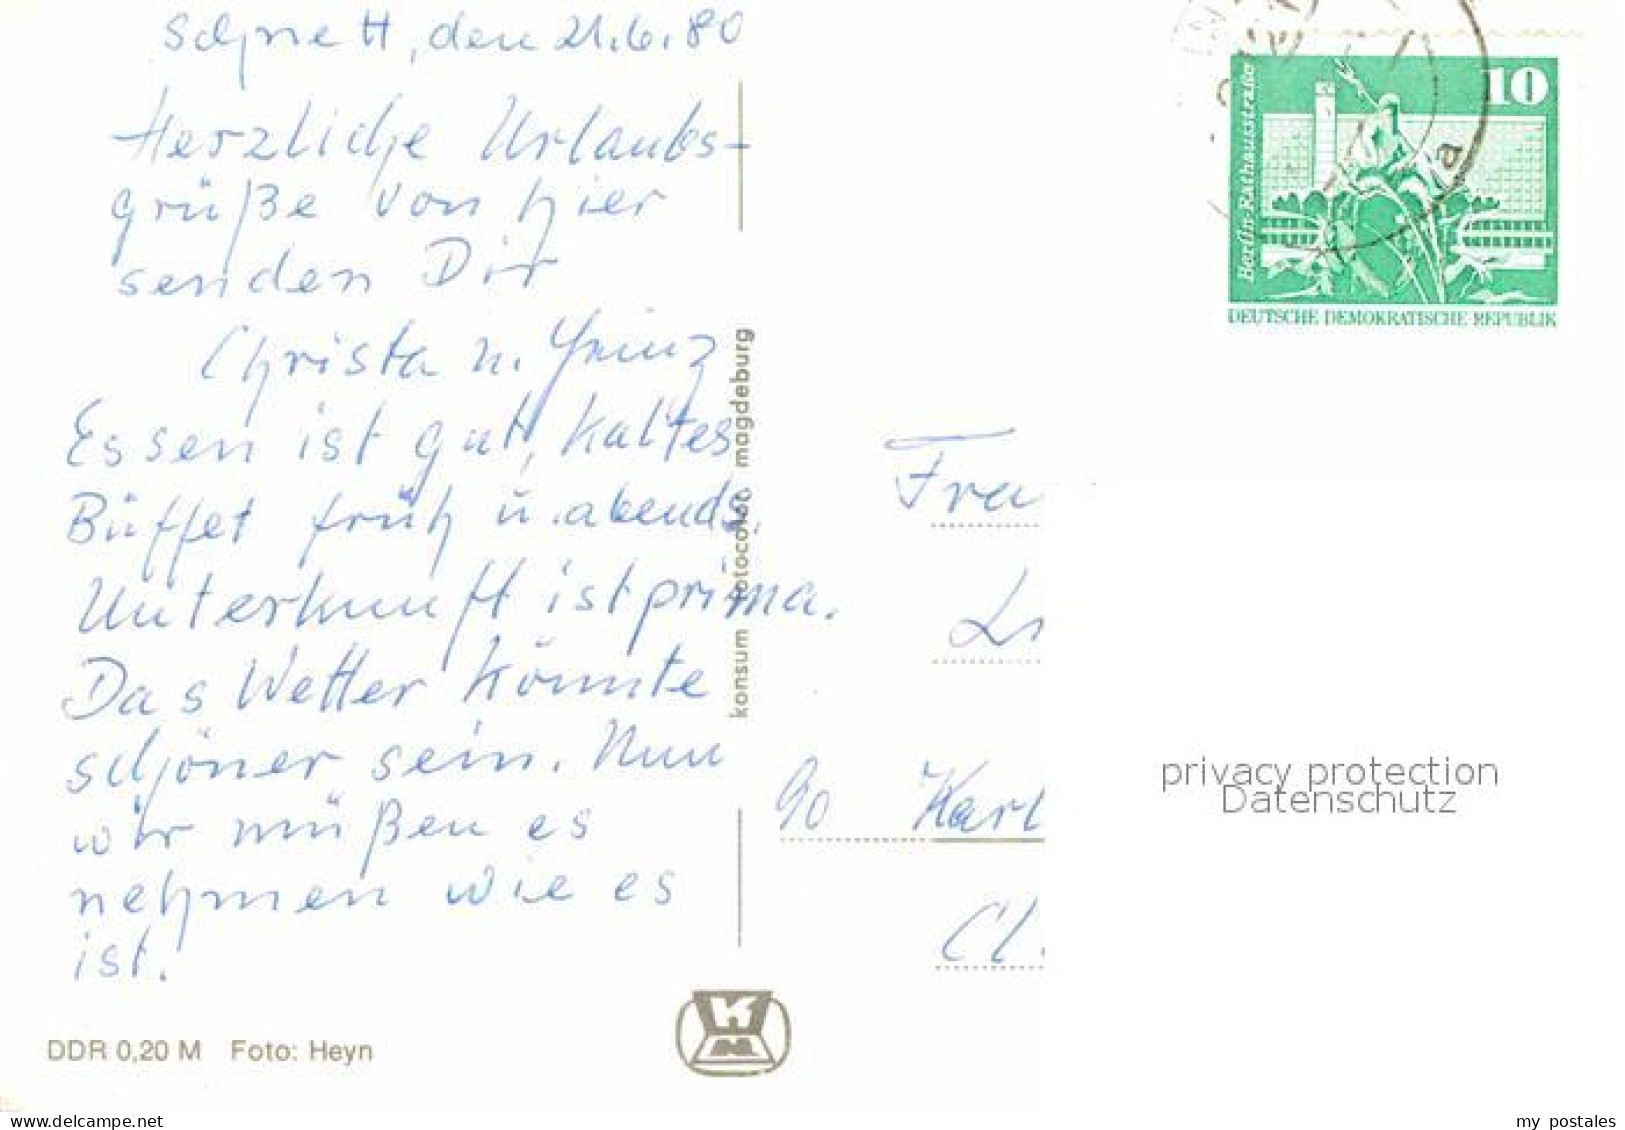 Schnett, den 21.6.80
Herzliche Urlaubs-
grüße von hier
senden Dir
Christa u. Heinz
Essen ist gut, kaltes
Büffet früh u. abends.
Unterkunft ist prima.
Das Wetter könnte
schöner sein. Nun
wir müßen es
nehmen wie es
ist.
DDR 0,20 M Foto: Heyn
konsum fotocolor magdeburg
KM
Berlin-Rathausstraße
10
DEUTSCHE DEMOKRATISCHE REPUBLIK
a
Frau
90 Karl
privacy protection
Datenschutz
delcampe.net
my_postales